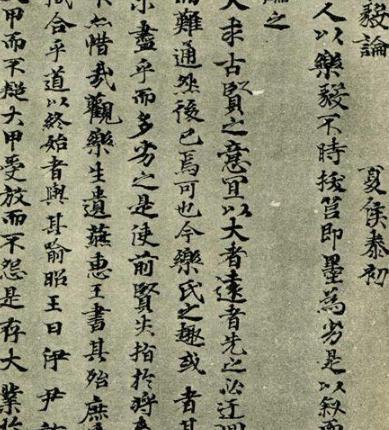 毅論 夏侯泰初
人以樂毅不時拔莒即墨為劣是以叙而
論之
夫求古賢之意宜以大者遠者先之必迂迴
而難通然後已焉可也今樂氏之趣或者其
未盡乎而多劣之是使前賢失指於將
不亦惜哉觀樂生遺燕惠王書其殆庶
機合乎道以終始者與其喻昭王曰伊尹
甲而不疑大甲受放而不怨是存大業於